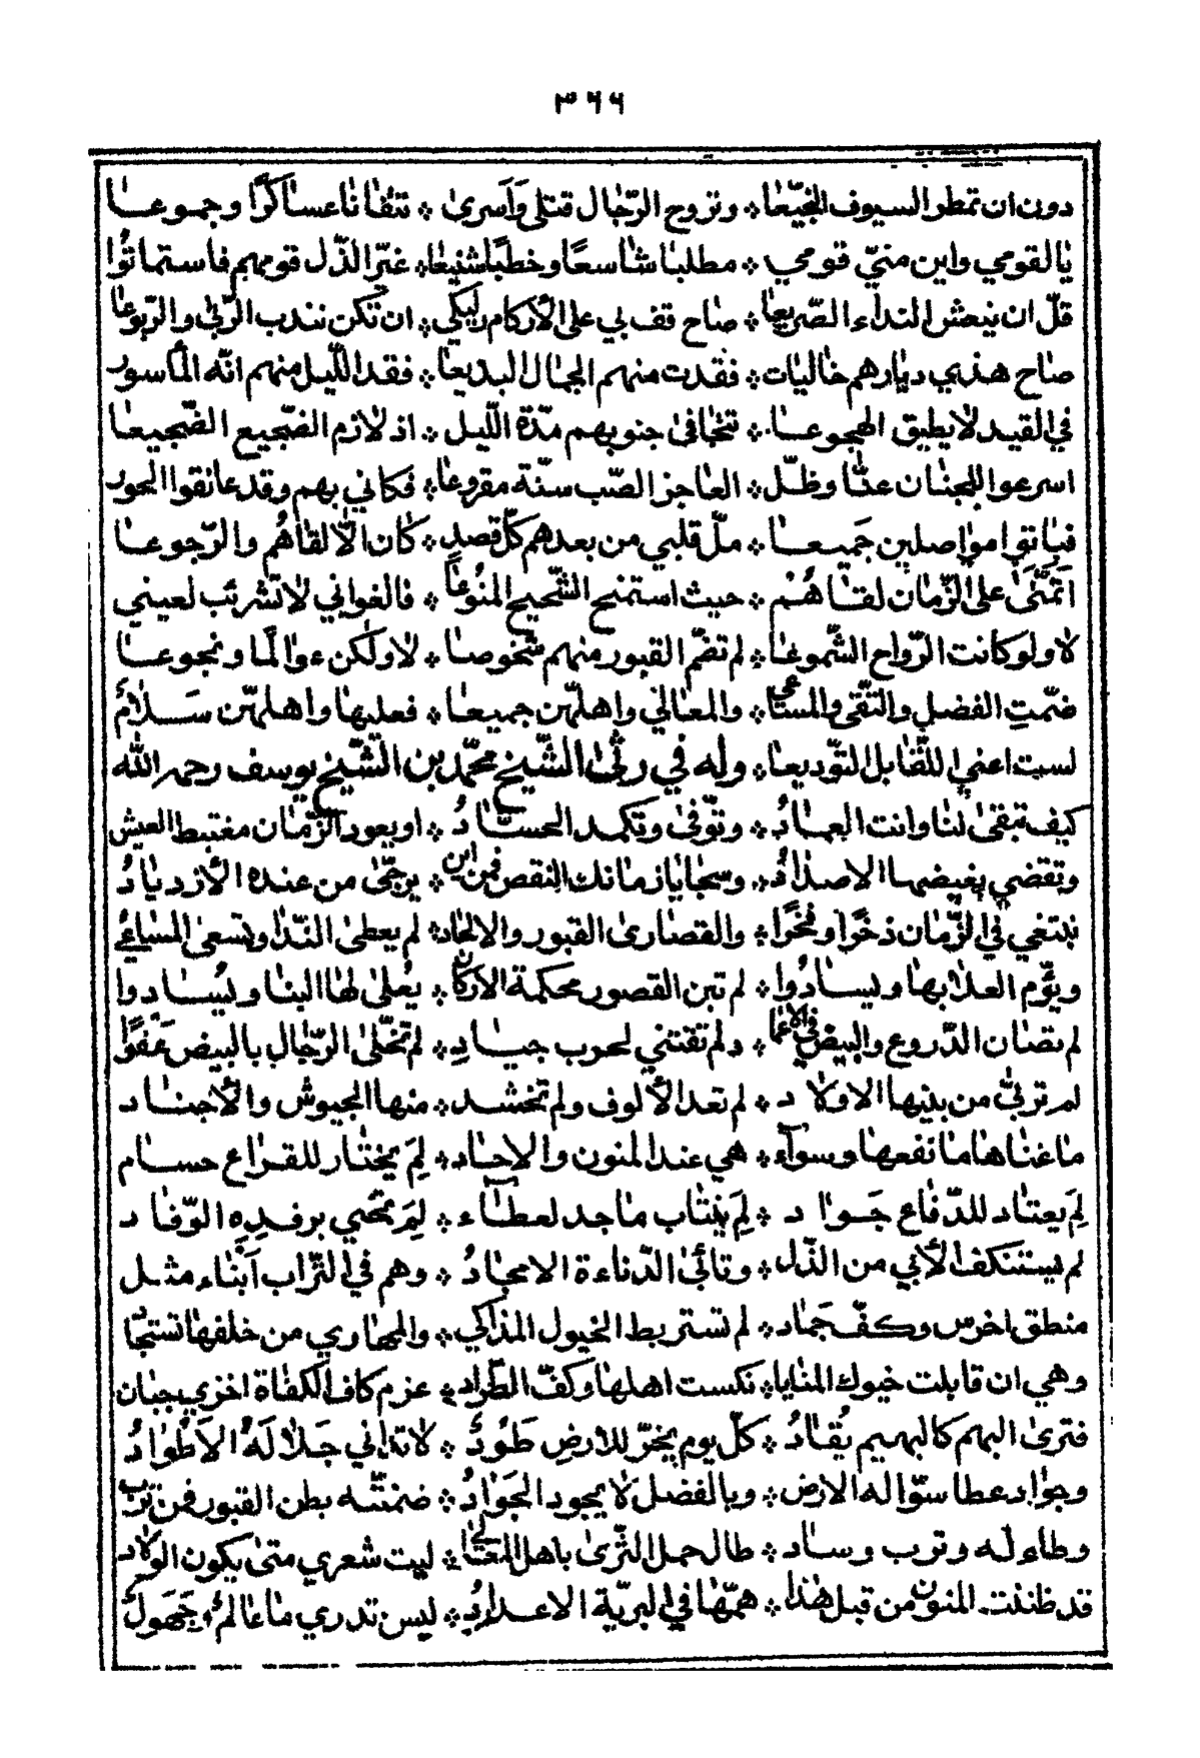 ٣٦٦
دون ان تمطر السيوف النجيعا ⁘ وتروح الرّجال قتلى وَاَسرىٰ ⁘ تتفانا عساكرًا وجموعا
يا لقومي واين منّي قومي ⁘ مطلبا شاسعًا وخطبًا شنيعا ⁘ غمّر الذّل قومهم فاستماتُوا
قلّ ان ينعش النداء الصّريعا ⁘ صاح قف بي على الأركام ليكي ⁘ ان تكن تندب الرّبى والرّبوعا
صاح هذي ديارهم خاليات ⁘ فقدت منهم الجمال البديعا ⁘ فقد اللّيل منهم انّه المأسور
في القيد لا يطيق الهجوعا ⁘ تتجافىٰ جنوبهم مدّة اللّيل ⁘ اذ لازم الضّجيع الضّجيعا
اسرعوا للجنان عنّا وظلّ ⁘ العاجز الصّب سنّة مقروعا ⁘ فكاني بهم وقد عانقوا الحور
فباتوا مواصلين جَميعا ⁘ ملّ قلبي من بعدهم كلّ قصد ⁘ كان الّا لقاهُم والرّجوعا
اتمنّىٰ على الزّمان لقاهُمْ ⁘ حيث استمنح الشّحيح المنُوعاً ⁘ فالغواني لا تشرئب لعيني
لا ولو كانت الرّواح الشّموعا ⁘ لم تضمّ القبور منهم شخوصا ⁘ لا ولكن عوالمًا ونجوعا
ضمّتِ الفضل والتّقى والمساعي ⁘ والمعالي واهلهّن جميعا ⁘ فعليها واهلهّن سَلامٌ
لست اعني اللقابل التّوديعا ⁘ وله في رثىٰ الشّيخ محمّد بن الشّيخ يوسف رحمه الله
كيف تبقىٰ لنا وانت العمادُ ⁘ وتوفىٰ وتكمد الحسّادُ ⁘ او يعود الزّمان مغتبط العيش
وتقضي بغيضها الاضدادُ ⁘ وسجايا زمانك النقص فمن اين ⁘ يرجّىٰ من عنده الأزديادُ
نبتغي في الزّمان ذخرًا وفخرًا ⁘ والقصارىٰ القبور والالحاد ⁘ لم يعطىٰ النّدا وتسعىٰ المساعي
ويؤّم العلا بها ويسادُوا ⁘ لم تبن القصور محكمة الأركان ⁘ يُعلىٰ لها البنا ويُسادوا
لم تصان الدّروع والبيض في الاغما ⁘ د لم تقتني لحوب جيادِ ⁘ لم تخلّىٰ الرّجال بالبيض
لم تربىّٰ من بنيها الاولاد ⁘ لم تعد الألوف ولم تخشد ⁘ منها الجيوش والأجناد
ما غناها ما نفعها وسواء ⁘ هي عند المنون والاحاد ⁘ لِمَ يختار للقراع حسام
لِمَ يعتاد للدّفاع جَواد ⁘ لِمَ ينتاب ماجد لعطآء ⁘ لِمَ تمحي برفدِهِ الوّفاد
لم يستنكف الأبي من الذّل ⁘ وتأبىٰ الدّناءة الامجادُ ⁘ وهم في التّراب اَبناء مثل
منطق اخرس وكفّ جَماد ⁘ لم تستربط الخيول المذاكي ⁘ والمهاري من خلفها تستجاد
وهي ان قابلت خيوك المنايا ⁘ نكست اهلها وكفّ الطّراد ⁘ عزم كاف الكفاة اخزي بجبان
فترىٰ البهم كالبهيم يُقادُ ⁘ كلّ يوم يخرّ للأرض طَودٌ ⁘ لا تداني جَلالَهُ الاَطوادُ
وجواد عطا سوّاله الارض ⁘ وبالفضل لا يجود الجَوَادُ ⁘ ضمنتّه بطن القبور فمن ترب
وطاء له وترب وساد ⁘ طال حمل الثّرىٰ باهل المعالي ⁘ ليت شعري متىٰ يكون الولاد
قد ظننت المنون من قبل هذا ⁘ همّها في البريّة الاعدادُ ⁘ ليس تدري ما عالمٌ جَهولٌ